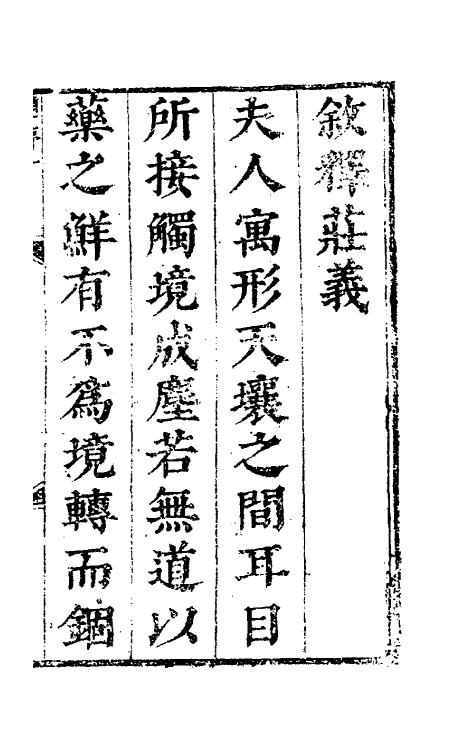 敘釋莊義
夫人寓形天壤之間耳目
所接觸境成塵若無道以
藥之鮮有不為境轉而錮